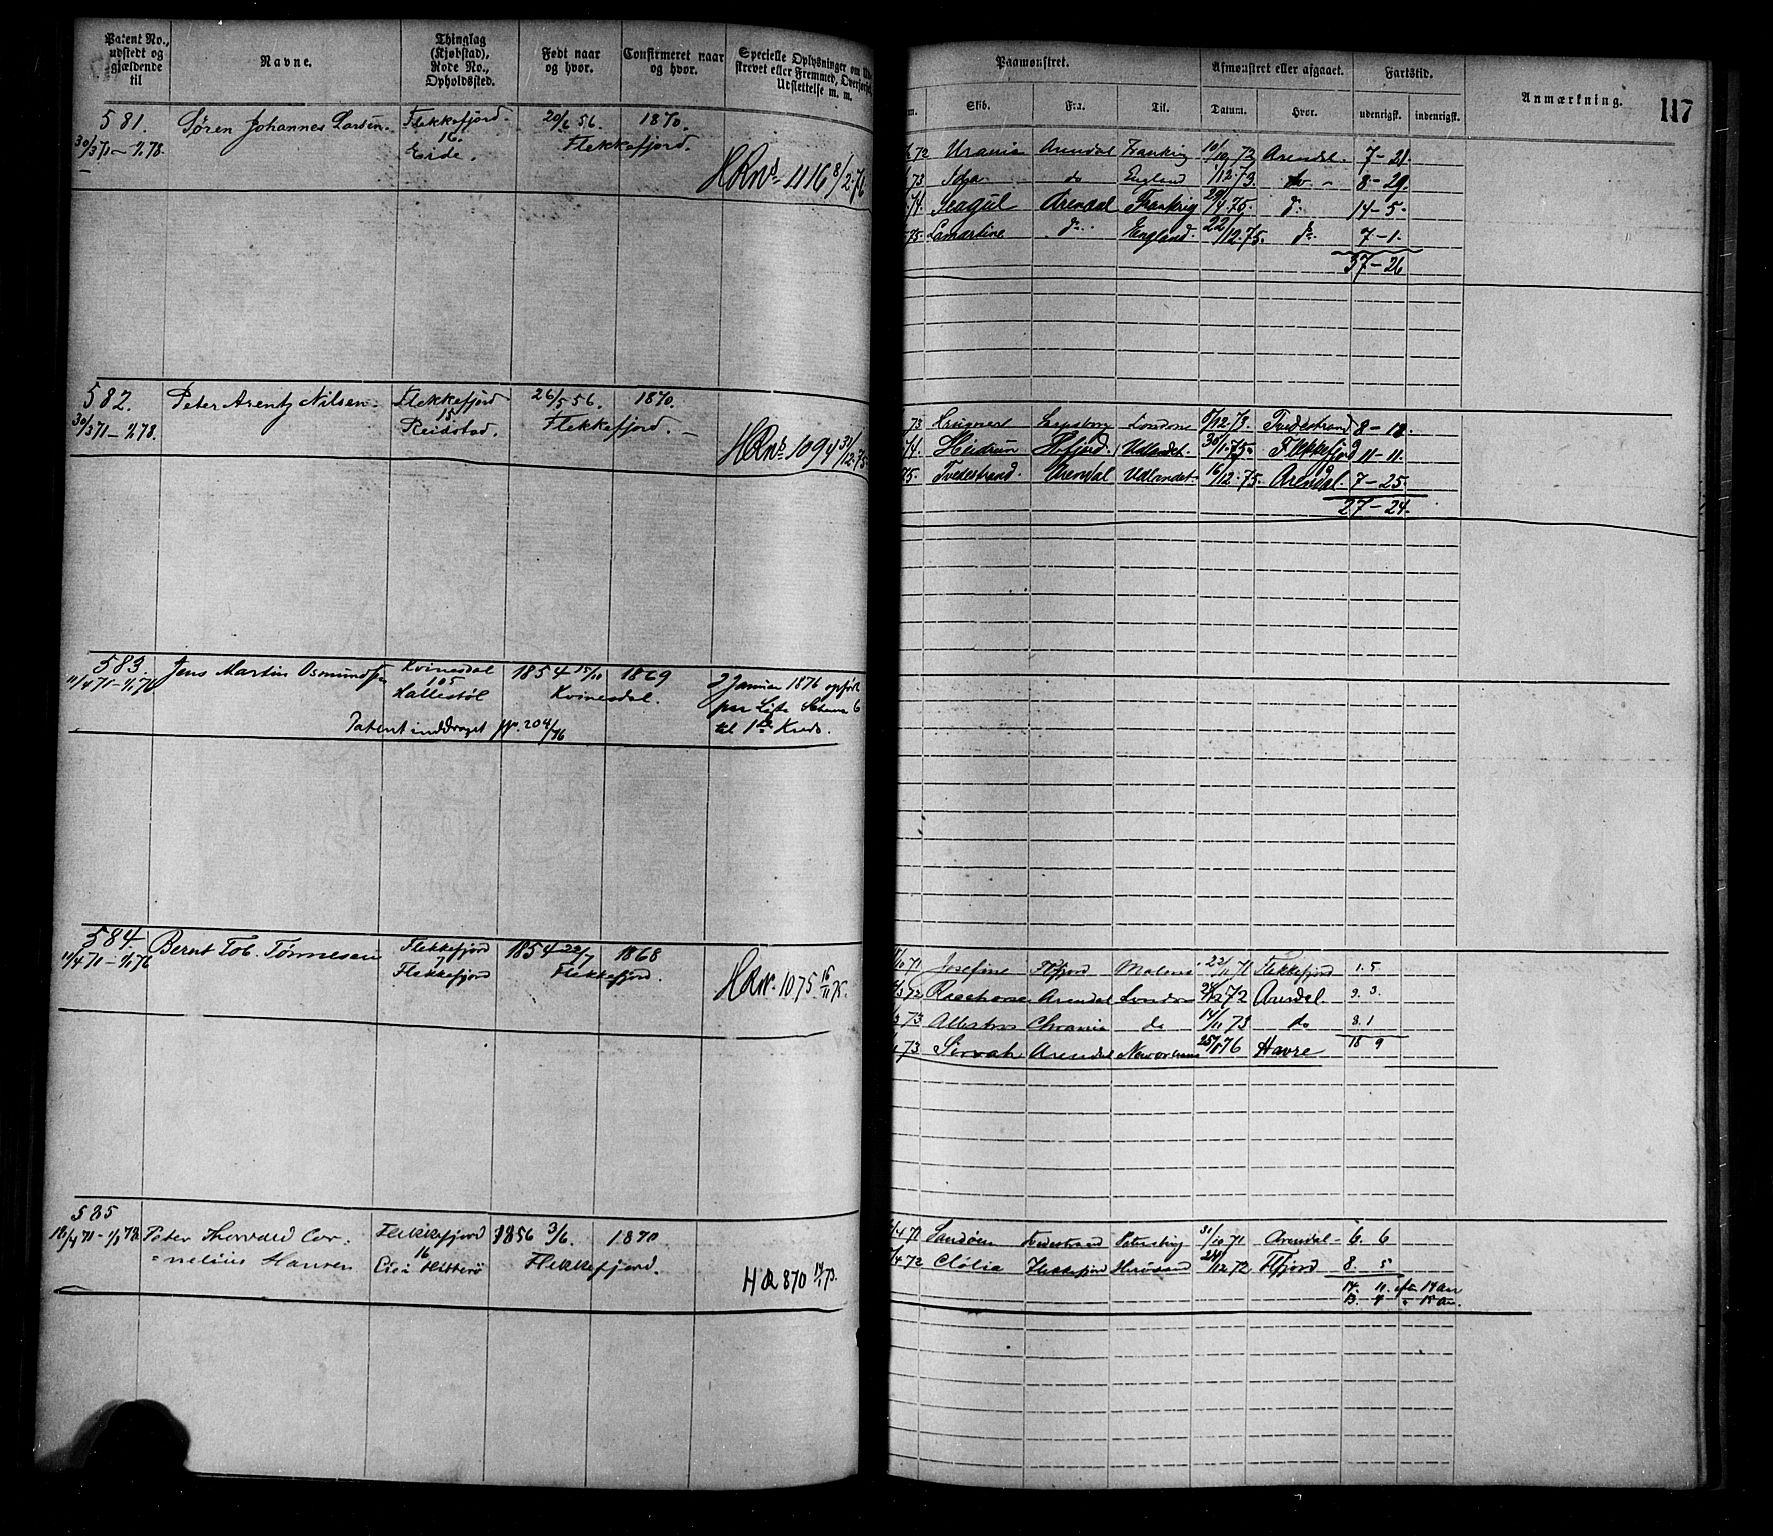 Patent No., udstedt og gjældende til
Navne.
Thinglag (Kjøbstad), Rode No., Opholdssted.
Født naar og hvor.
Confirmeret naar og hvor.
Specielle Oplysninger om
strevet eller Fremmed, Overførsel,
Udslettelse m. m.
Paamønstret.
Skib.
Fra.
Til.
Afmønstret eller afgaaet.
Datum.
Hvor.
Fartstid.
udenrigsk.
indenrigsk.
Anmærkning.
117
581. Søren Johannes Larsen. Flekkefjord. 20/6 56. 1870.
30/3 71 – 1/1 78. 16. Flekkefjord.
Eide. HRno 1116 8/2.76
72 Urania Arendal Frankrig 10/10 72 Arendal. 7–21.
73 do England /12.73. do 8–29.
74. Seagul Arendal Frankrig 29/4.75. do 14–5.
75. Lamartine do England. 22/12.75. do 7–1.
37–26
582. Peter Arentz Nilsen. Flekkefjord 26/5 56. 1870.
30/3 71 – 1/1 78. 15 Flekkefjord.
Reidstad. HRno 1094 31/12.75.
73 London /12 73. Tvedestrand 8–18.
74. Heidrun Ffjord. Udlandet. 30/1.75. Flekkefjord 11–11.
75. Tvedestrand. Arendal Udlandet. 16/12.75. Arendal 7–25.
27–24.
583. Jens Martin Osmundsen Kvinesdal 1854 15/10 1869 2 Januar 1876 opført
11/4 71 – 1/1 76 105 Kvinesdal. pr Liste Schema 6
Hallestøl til 1ste Kreds.
Patent inddraget pp. 204/76
584. Bernt Tob. Tønnesen Flekkefjord 1854 22/7 1868
11/4 71 – 1/1 76 7 Flekkefjord.
Flekkefjord HRno. 1075 16/11 75.
71 Josefine Ffjord 22/11 71 Flekkefjord 1. 5
72 Arendal London 72 Arendal. 9. 3.
73 do 14/11 73 do 8. 1
73 Arendal 76 Havre 18 9
585 Peter Thorvald Cor= Flekkefjord 1856 3/6. 1870
18/4 71 – 1/1 78. =nelius Hansen 16 Flekkefjord.
Eie i Hitterø HR 870 14/1 73.
4 71 Sandøen Tvedestrand Petersborg 31/10 71 Arendal 6. 6
4 72 Clølia Flekkefjord 24/12 72 Ffjord 8. 5
14. 11. efter 14 Aar
13. 7 " 15 Aar.